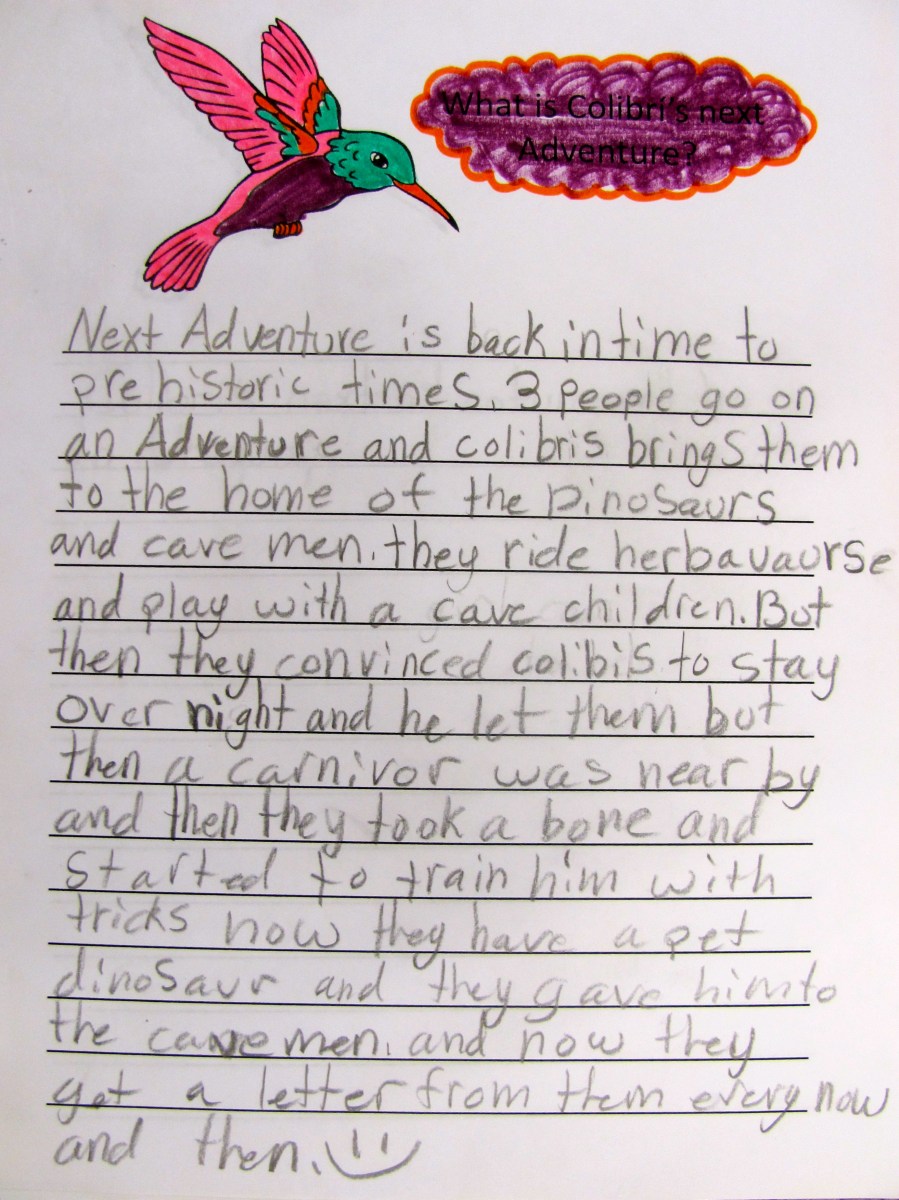 What is Colibrí's next
Adventure?
Next Adventure is back in time to
pre historic times. 3 people go on
an Adventure and colibris brings them
to the home of the Dinosaurs
and cave men. they ride herbavaurse
and play with a cave children. But
then they convinced colibis to stay
over night and he let them but
then a carnivor was near by
and then they took a bone and
started to train him with
tricks now they have a pet
dinosaur and they gave him to
the cave men. and now they
get a letter from them every now
and then.